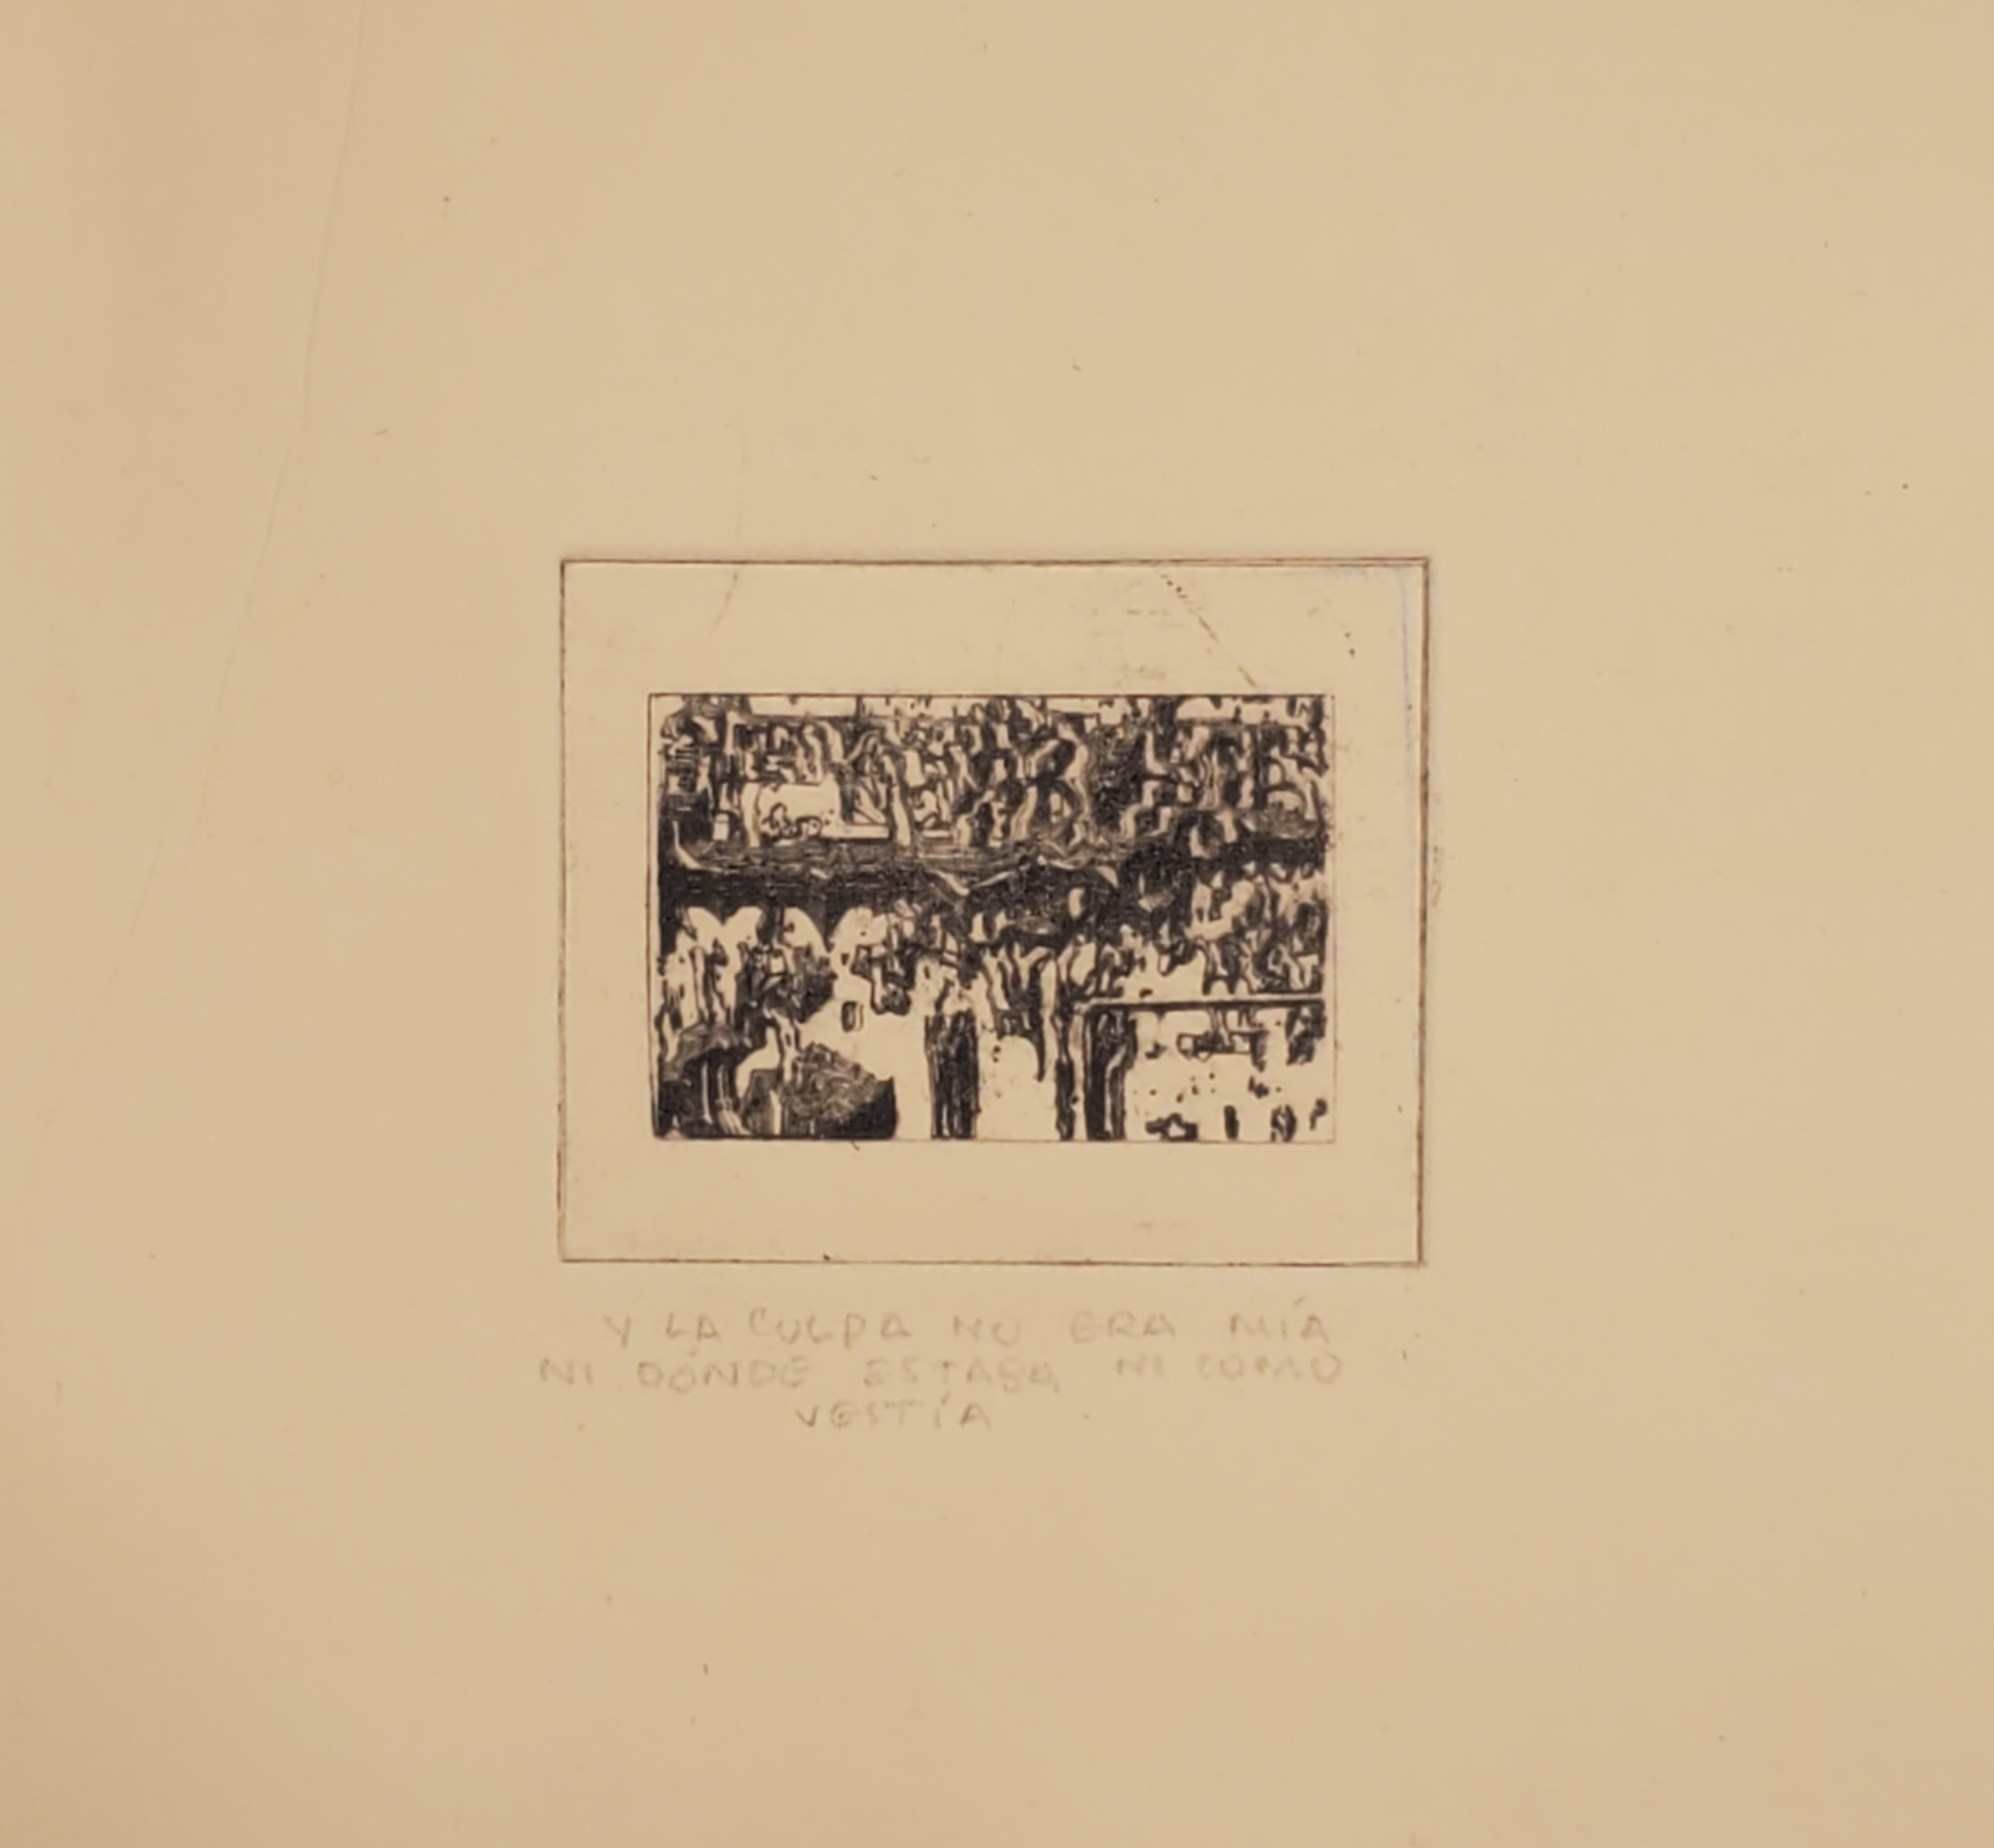 Y LA CULPA NO ERA MÍA
NI DÓNDE ESTABA NI COMO
VESTÍA